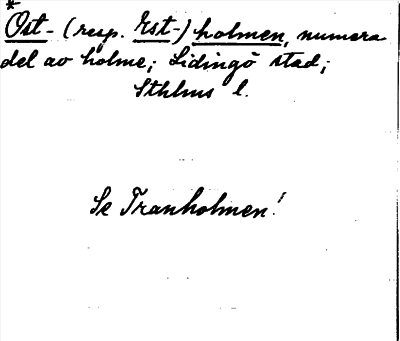 *Ost- (resp. Est-) holmen, numera
del av holme; Lidingö stad;
Sthlms l.
Se Tranholmen!